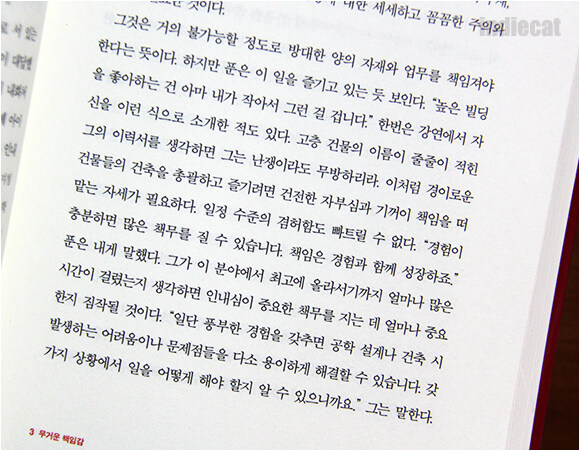 indiecat
요한 것이다.
에 대한 세세하고 꼼꼼한 주의와
그것은 거의 불가능할 정도로 방대한 양의 자재와 업무를 책임져야
한다는 뜻이다. 하지만 푼은 이 일을 즐기고 있는 듯 보인다. “높은 빌딩
을 좋아하는 건 아마 내가 작아서 그런 걸 겁니다.” 한번은 강연에서 자
신을 이런 식으로 소개한 적도 있다. 고층 건물의 이름이 줄줄이 적힌
그의 이력서를 생각하면 그는 난쟁이라도 무방하리라. 이처럼 경이로운
건물들의 건축을 총괄하고 즐기려면 건전한 자부심과 기꺼이 책임을 떠
맡는 자세가 필요하다. 일정 수준의 겸허함도 빠트릴 수 없다. “경험이
충분하면 많은 책무를 질 수 있습니다. 책임은 경험과 함께 성장하죠.”
푼은 내게 말했다. 그가 이 분야에서 최고에 올라서기까지 얼마나 많은
시간이 걸렸는지 생각하면 인내심이 중요한 책무를 지는 데 얼마나 중요
한지 짐작될 것이다. “일단 풍부한 경험을 갖추면 공학 설계나 건축 시
발생하는 어려움이나 문제점들을 다소 용이하게 해결할 수 있습니다. 갖
가지 상황에서 일을 어떻게 해야 할지 알 수 있으니까요.” 그는 말한다.
3 무거운 책임감